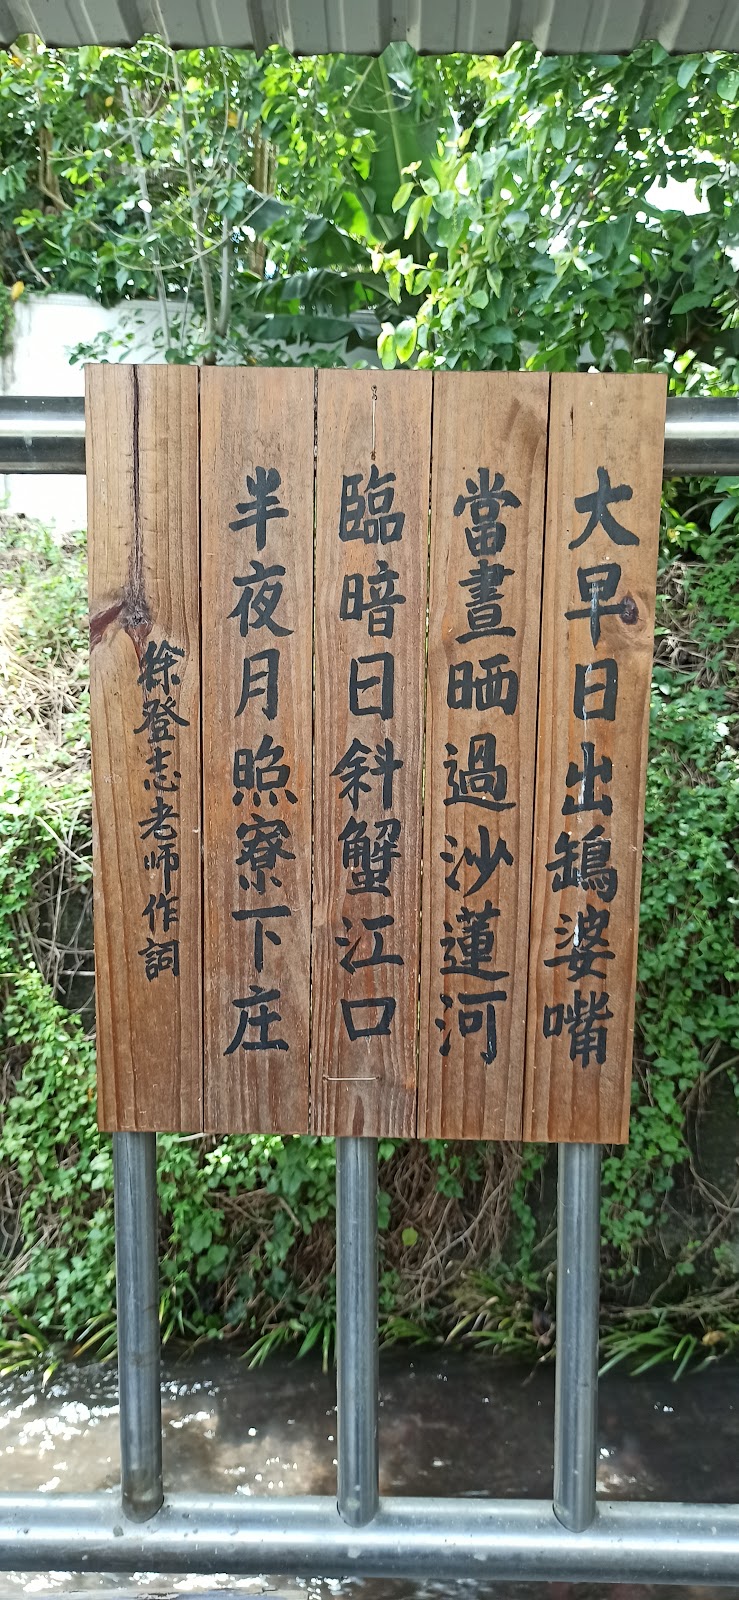 大早日出鷂婆嘴
當晝晒過沙蓮河
臨暗日斜蟹江口
半夜月照寮下庄
徐登志老師作詞